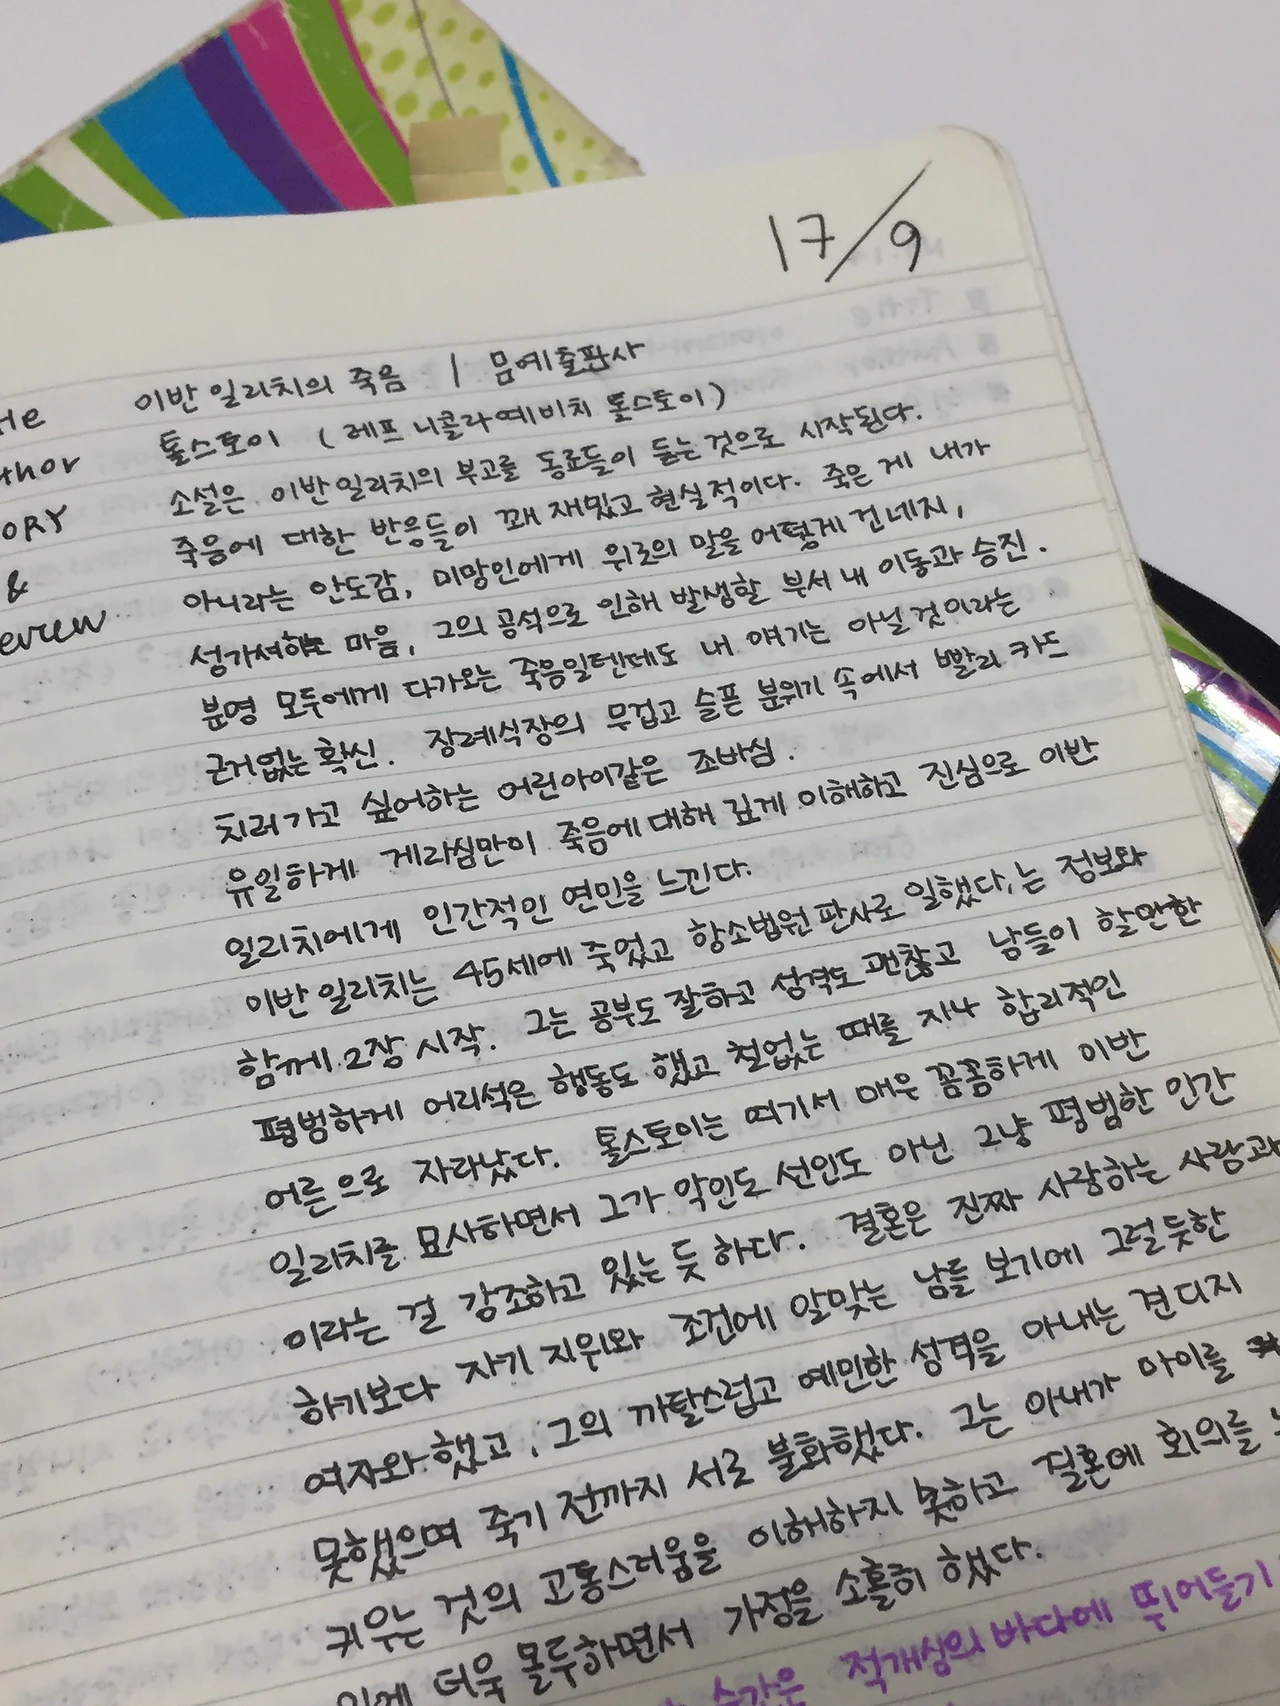 17/9
이반 일리치의 죽음 | 뭄예출판사
thor 톨스토이 (레프 니콜라예비치 톨스토이)
ORY 소설은 이반 일리치의 부고를 동료들이 듣는 것으로 시작된다.
& 죽음에 대한 반응들이 꽤 재밌고 현실적이다. 죽은 게 내가
eview 아니라는 안도감, 미망인에게 위로의 말을 어떻게 건네지,
성가셔하는 마음, 그의 공석으로 인해 발생할 부서 내 이동과 승진.
분명 모두에게 다가오는 죽음일텐데도 내 얘기는 아닐 것이라는
근거없는 확신. 장례식장의 무겁고 슬픈 분위기 속에서 빨리 카드
치러 가고 싶어하는 어린아이같은 조바심.
유일하게 게라심만이 죽음에 대해 깊게 이해하고 진심으로 이반
일리치에게 인간적인 연민을 느낀다.
이반 일리치는 45세에 죽었고 항소법원 판사로 일했다,는 정보와
함께 2장 시작. 그는 공부도 잘하고 성격도 괜찮고 남들이 할만한
평범하게 어리석은 행동도 했고 철없는 때를 지나 합리적인
어른으로 자라났다. 톨스토이는 여기서 매우 꼼꼼하게 이반
일리치를 묘사하면서 그가 악인도 선인도 아닌 그냥 평범한 인간
이라는 걸 강조하고 있는 듯 하다. 결혼은 진짜 사랑하는 사람과
하기보다 자기 지위와 조건에 알맞는 남들 보기에 그럴듯한
여자와 했고, 그의 까탈스럽고 예민한 성격을 아내는 견디지
못했으며 죽기 전까지 서로 불화했다. 그는 아내가 아이를
키우는 것의 고통스러움을 이해하지 못하고 결혼에 회의를
더욱 몰두하면서 가정을 소홀히 했다.
순간은 적개심의 바다에 뛰어들기